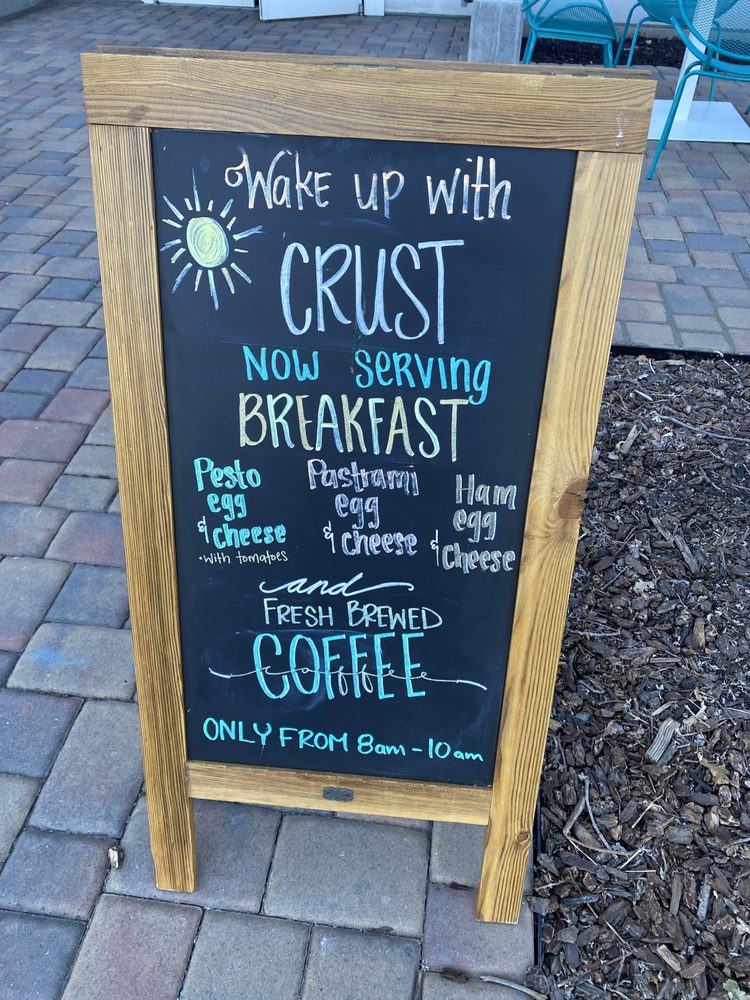 Wake up with
CRUST
NOW SERVING
BREAKFAST
Pesto
egg
& cheese
• with tomatoes
Pastrami
egg
& cheese
Ham
egg
& cheese
and
FRESH BREWED
COFFEE
coffee
ONLY FROM 8am - 10am